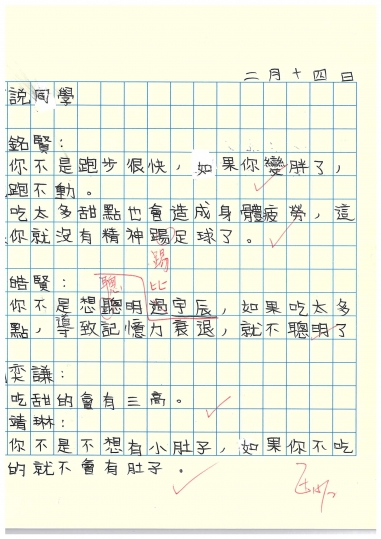 二月十四日
說同學
銘賢：
你不是跑步很快，如果你變胖了，
跑不動。
吃太多甜點也會造成身體疲勞，這
你就沒有精神踢足球了。
踢
皓賢：
聰 比
你不是想聰明過宇辰，如果吃太多
點，導致記憶力衰退，就不聰明了
奕謙：
吃甜的會有三高。
靖琳：
你不是不想有小肚子，如果你不吃
的就不會有肚子．